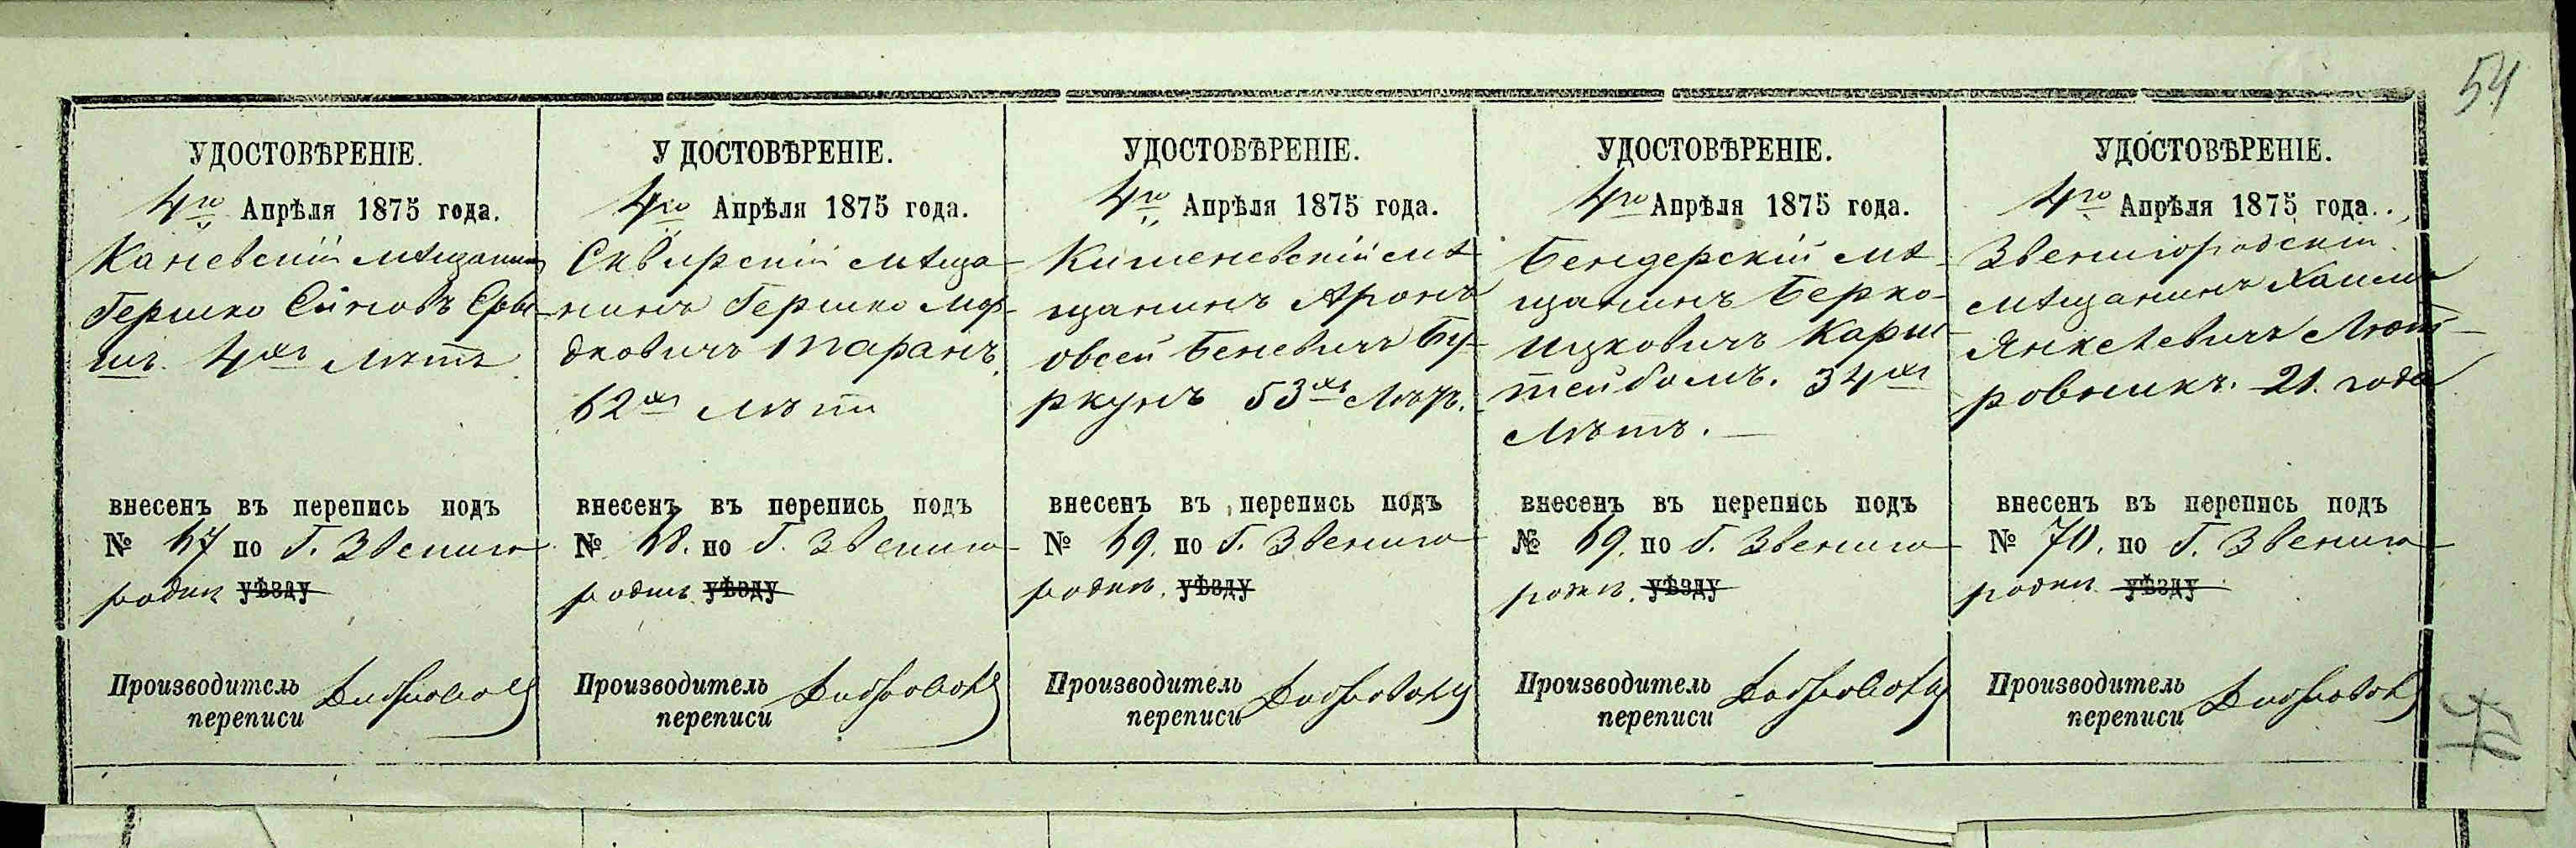 54
УДОСТОВѢРЕНІЕ.
4го Апрѣля 1875 года.
Каневскій мѣщанинъ
Гершко
4хъ лѣтъ
внесенъ въ перепись подъ
№ 67 по Г. Звениго
родкѣ уѣзду
Производитель
переписи
УДОСТОВѢРЕНІЕ.
4го Апрѣля 1875 года.
Сквирскій мѣща-
нинъ Гершко Мор-
дковичъ Таранъ,
62хъ лѣтъ
внесенъ въ перепись подъ
№ 68. по Г. Звениго-
родкѣ уѣзду
Производитель
переписи
УДОСТОВѢРЕНІЕ.
4го Апрѣля 1875 года.
Кишеневскій мѣ-
щанинъ Аронъ
Овсей Беневичъ Бу-
ркунъ 53хъ лѣтъ.
внесенъ въ перепись подъ
№ 69. по Г. Звениго-
родкѣ. уѣзду
Производитель
переписи
УДОСТОВѢРЕНІЕ.
4го Апрѣля 1875 года.
Бендерскій мѣ-
щанинъ Берко-
Ицковичъ Карш-
тейбомъ. 34хъ
лѣтъ. —
внесенъ въ перепись подъ
№ 69. по Г. Звениго-
родкѣ. уѣзду
Производитель
переписи
УДОСТОВѢРЕНІЕ.
4го Апрѣля 1875 года.
Звенигородскій
мѣщанинъ Хаимъ
Янкелевичъ
21. года
внесенъ въ перепись подъ
№ 70. по Г. Звениго-
родкѣ уѣзду
Производитель
переписи